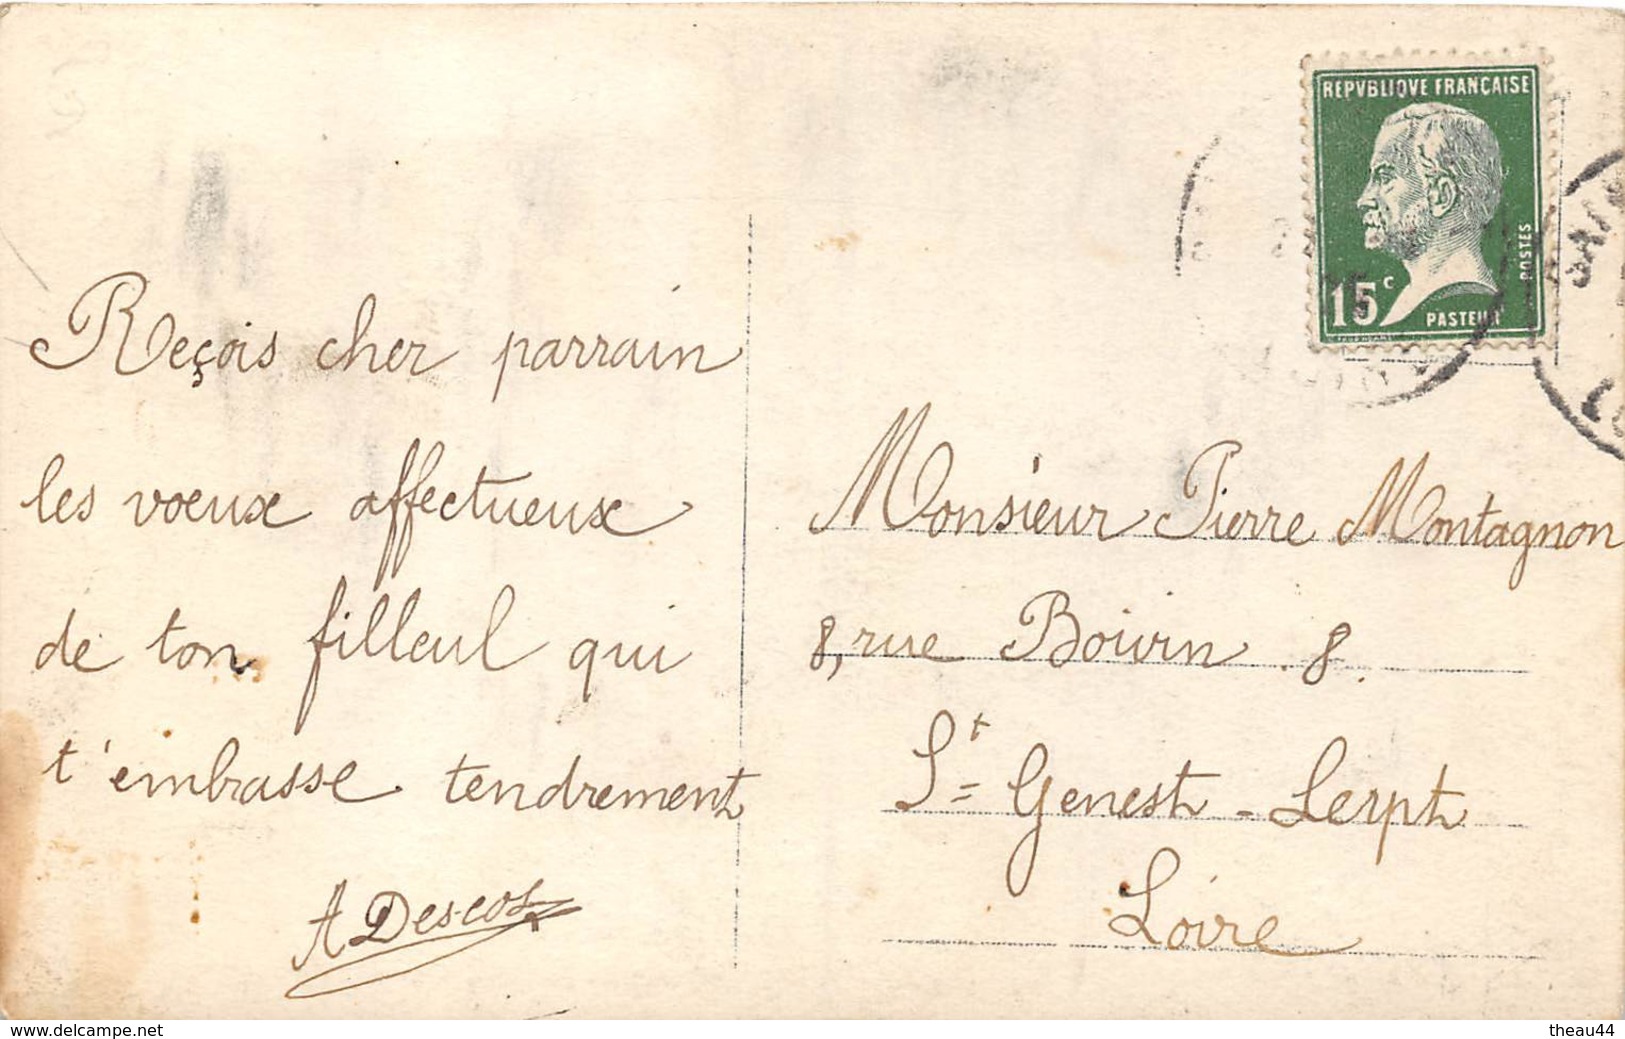 REPVBLIQVE FRANÇAISE
POSTES
15c
PASTEUR
Reçois cher parrain
les voeux affectueux
de ton filleul qui
t'embrasse tendrement
A Descos
Monsieur Pierre Montagnon
8, rue Boivin . 8.
St= Genest - Lerpt
Loire
www.delcampe.net
theau44